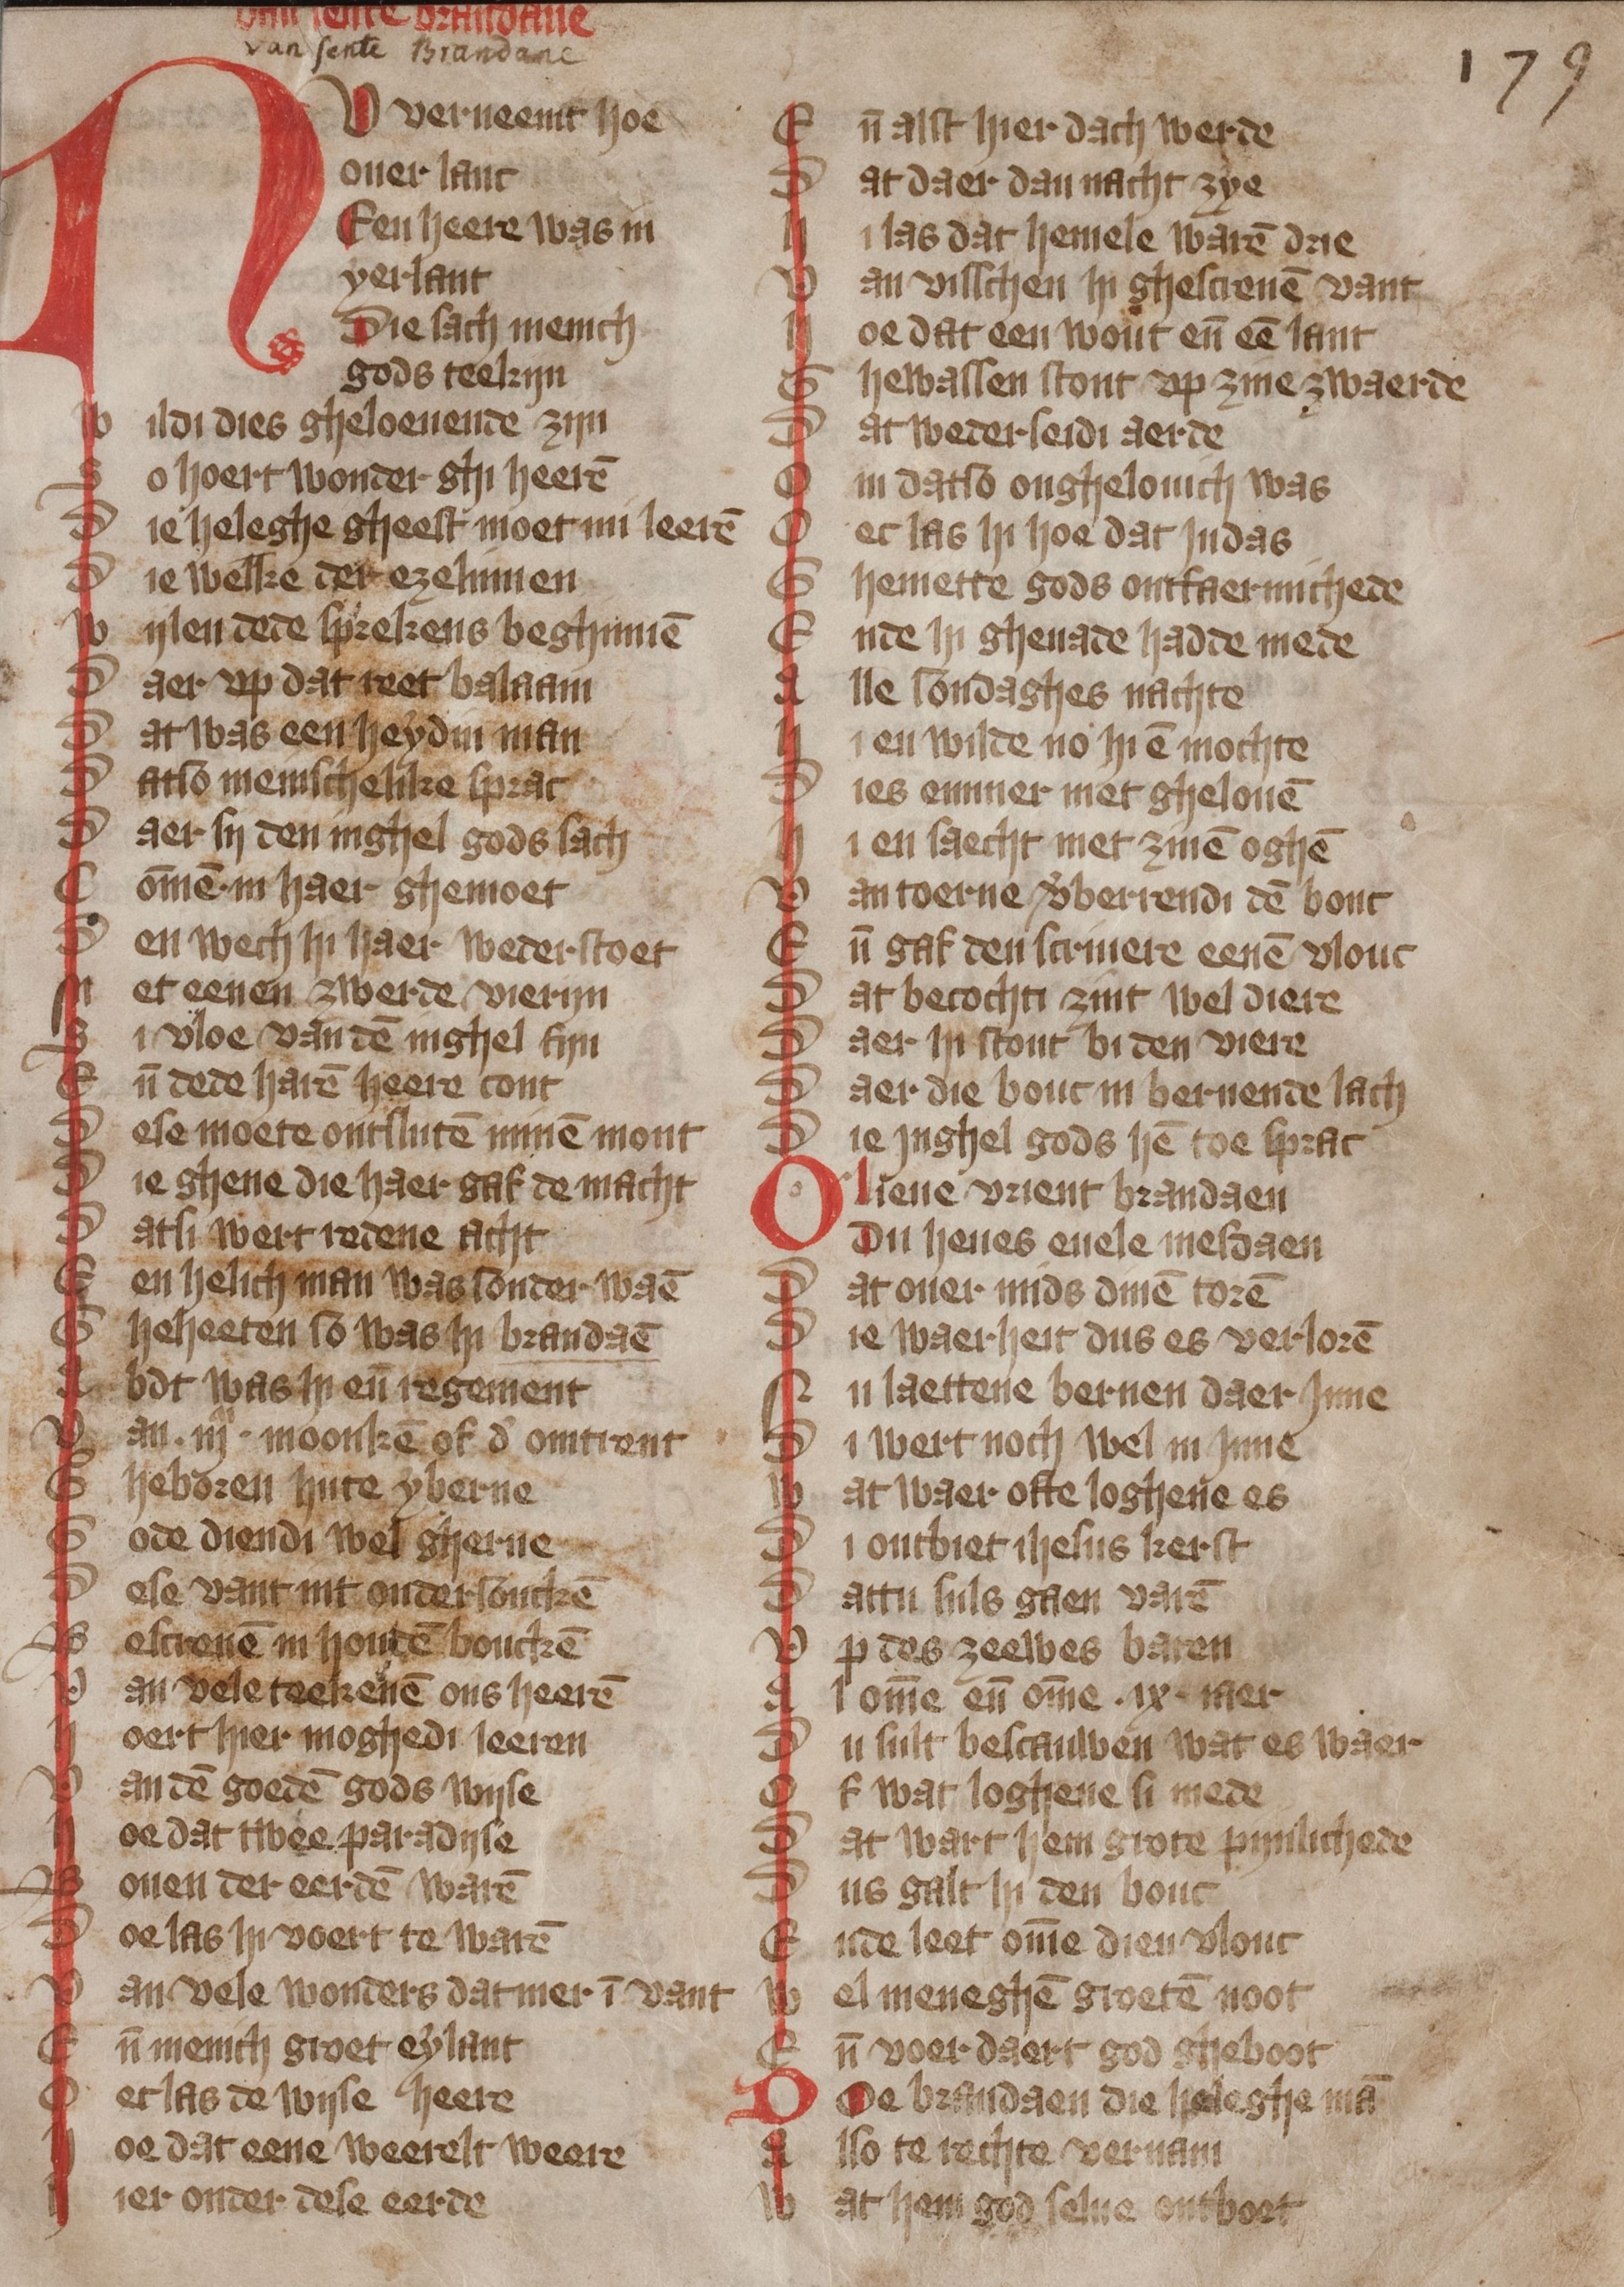 van sente brandane
van sente Brandane
179
NU verneemt hoe
ouer lanc
Een heere was in
yerlant
Die sach menich
gods teekijn
Wildi dies gheloeuende zijn
So hoert wonder ghi heerē
Die heleghe gheest moet mi leerē
Die welke der ezelinnen
Wijlen dede sprekens beghinnē
Daer vp dat reet balaam
Dat was een heydin man
Datso menschelike sprac
Daer sy den inghel gods sach
Cōmē in haer ghemoet
Den wech hi haer wederstoet
Met eenen zwerde vierijn
Si vloe van dē inghel fijn
Eñ dede harē heere cont
Dese moete ontslutē minē mont
Die ghene die haer gaf de macht
Datsi wert redene acht
Een helich man was sonder waē
Gheheeten so was hi brandaē
Abdt was hi eñ regement
Van .iijᴹ. moonkē of d' omtrent
Gheboren hute yberne
Gode diendi wel gherne
Dese vant int ondersouckē
Bescreuē in houdē bouckē
Van vele teekenē ons heerē
Hoert hier moghedi leeren
Van dē goedē gods wijse
Hoe dat twee paradijse
Bouen der eerdē warē
Doe las hi voert te warē
Van vele wonders datmer ī vant
Eñ menich groet eylant
Oec las de wijse heere
Hoe dat eene weerelt weere
Hier onder dese eerde
Eñ alst hier dach werde
Dat daer dan nacht zye
Hi las dat hemele warē drie
Van visschen hi ghescreuē vant
Hoe dat een wout eñ eē lant
Ghewassen stont vp zine zwaerde
Dat wederseidi aerde
Om datso onghelouich was
Oec las hi hoe dat Judas
Ghemette gods ontfaermichede
Ende hi ghenade hadde mede
Alle sondaghes nachte
Hi en wilde no hi ē mochte
Dies emmer niet ghelouē
Hi en saecht met zinē oghē
Van toerne v'berrendi dē bouc
Eñ gaf den scriuere eenē vlouc
Dat becochti zint wel diere
Daer hi stont bi den viere
Daer die bouc in bernende lach
Die Jnghel gods hē toe sprac
O lieue vrient brandaen
Du heues euele mesdaen
Dat ouer mids dinē torē
Die waerheit dus es verlorē
Nu laettene bernen daer Jnne
Di wert noch wel in Jnne
Wat waer ofte loghene es
Di ontbiet ihesus kerst
Dattu suls gaen varē
Vp des zeewes baren
Al ōme eñ ōme .ix. iaer
Du sult bescauwen wat es waer
Of wat loghene si mede
Dat wart hem grote pijnlichede
Dus galt hi den bouc
Ende leet ōme dien vlouc
Wel meneghē groetē noot
Eñ voer daert god gheboot
Doe brandaen die heleghe mā
Also te rechte vernam
Wat hem god selue ontboet